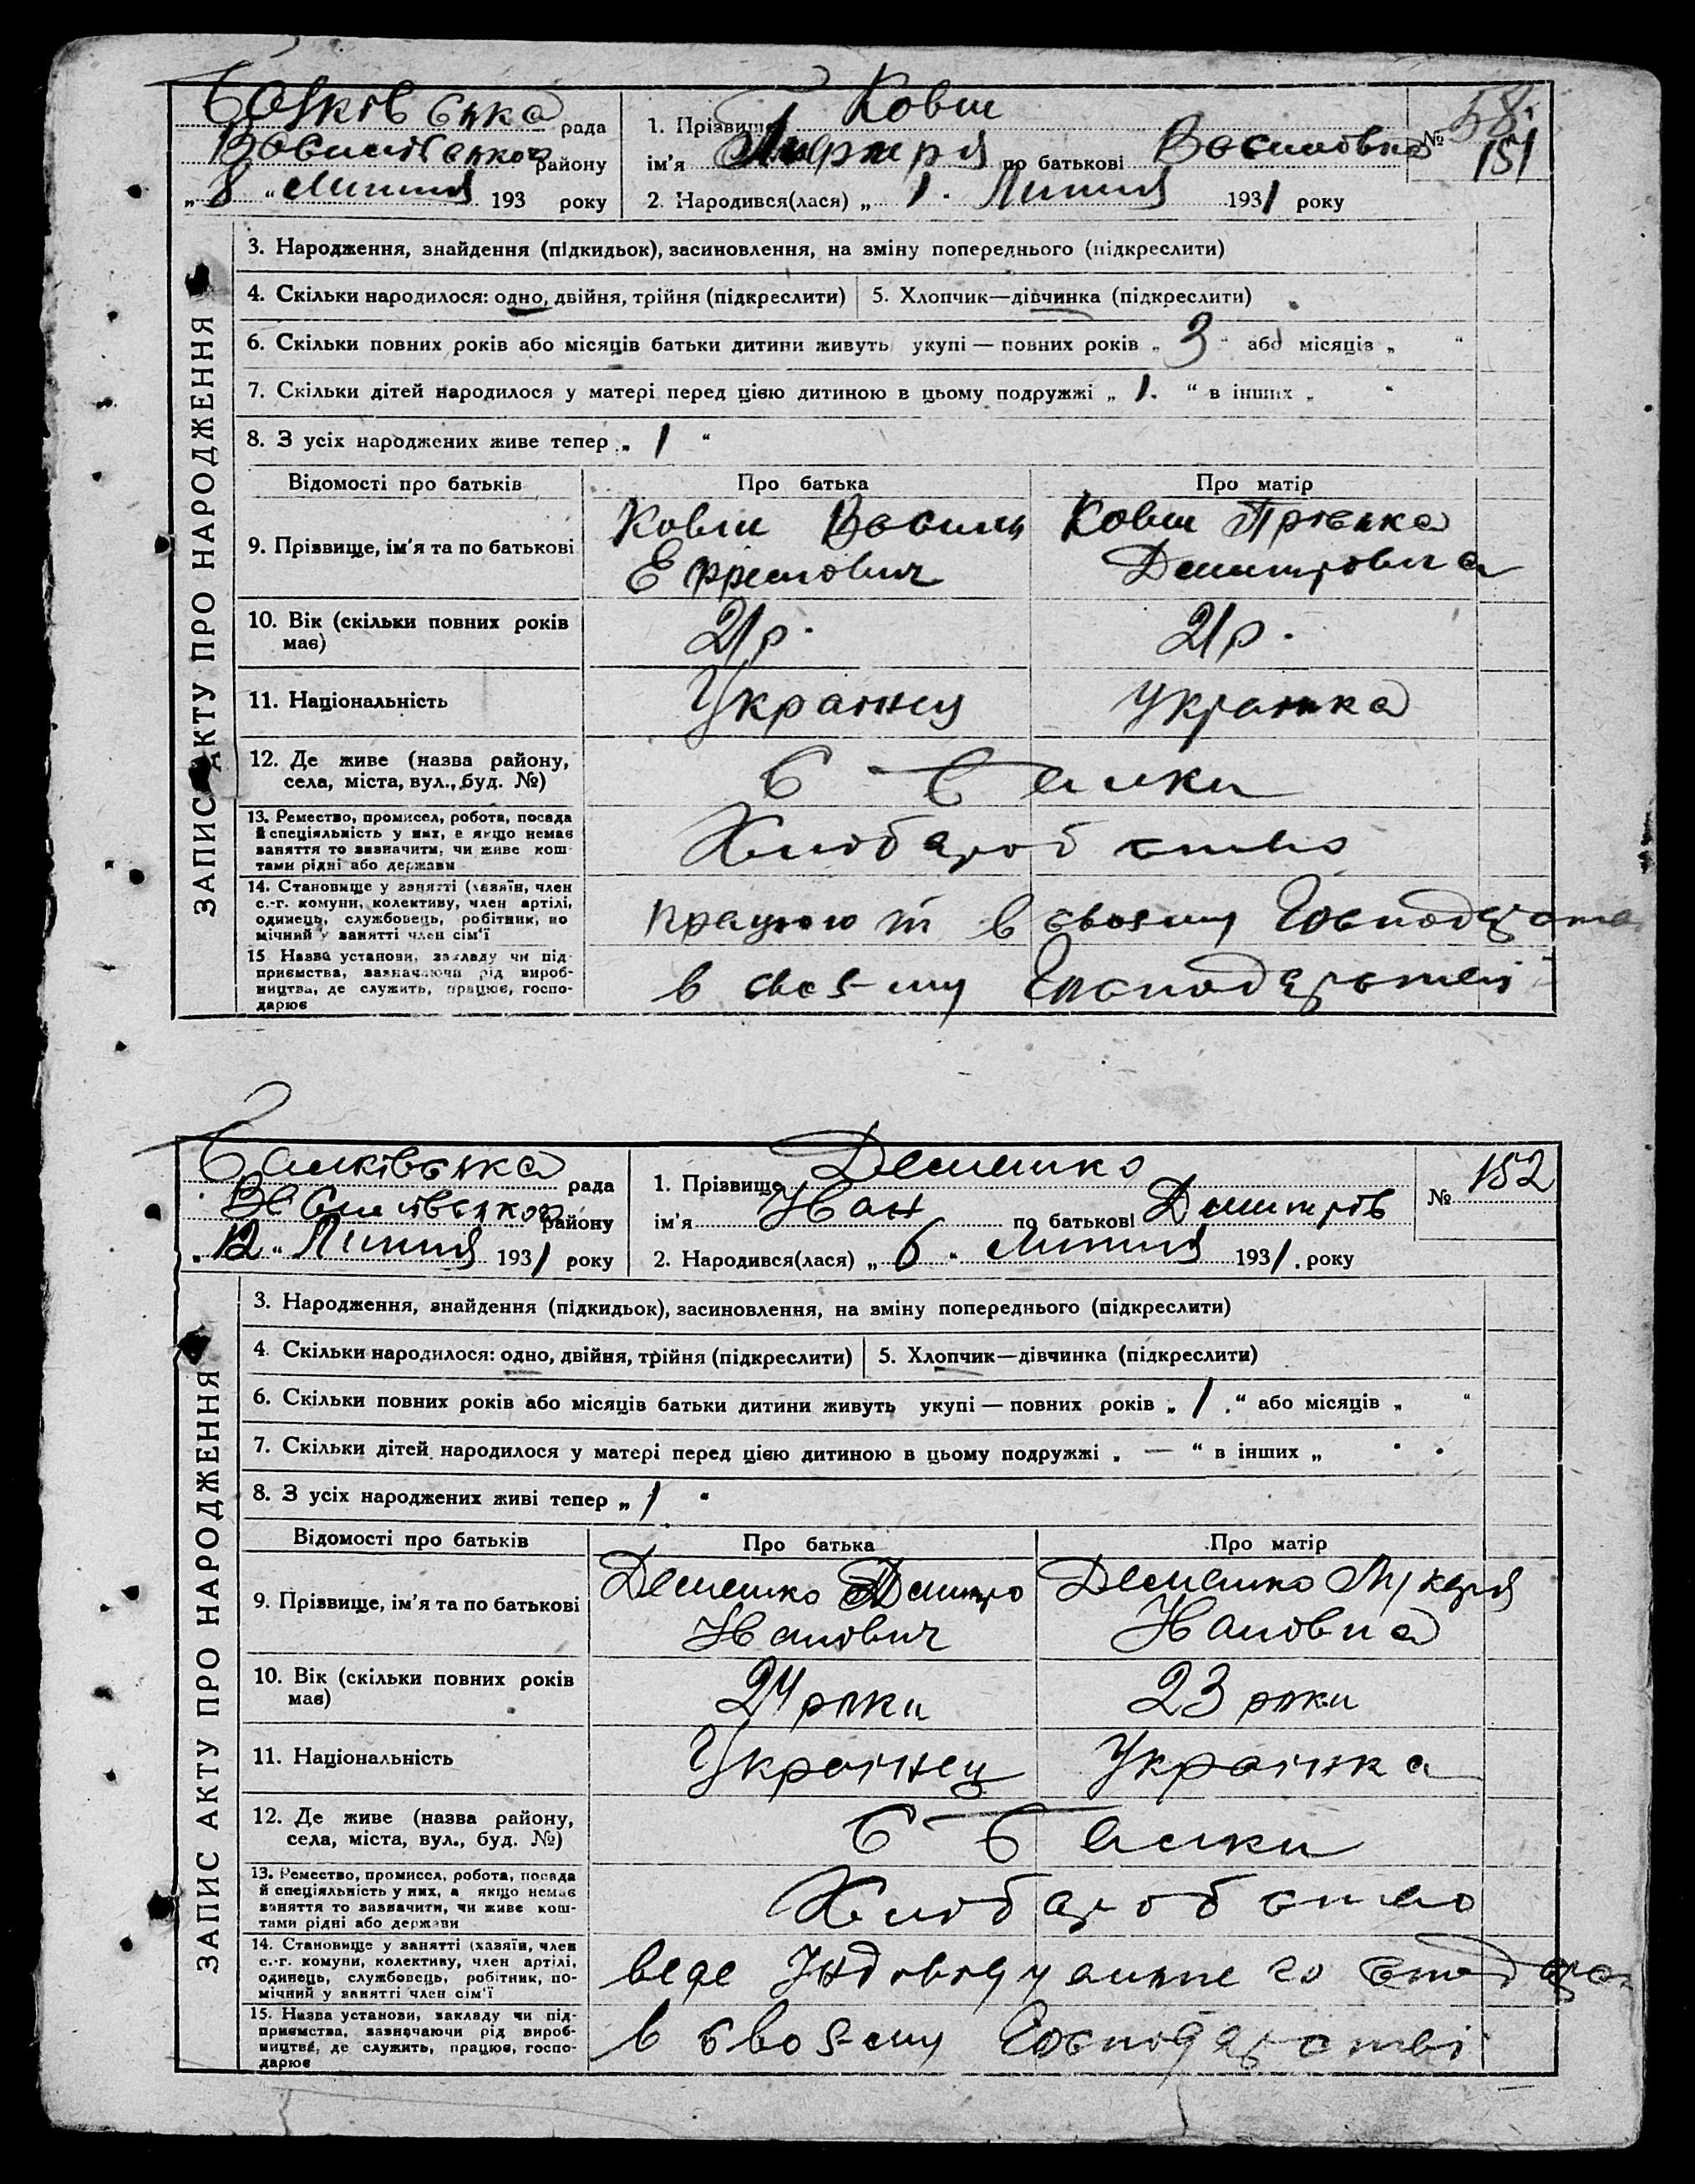 Балківська рада
Василівського району
„ 8 “ Липня 193 року
1. Прізвище Ковш
ім'я по батькові Василівна
2. Народився(лася) „ 1. Липня 1931 року
58.
№ 151
ЗАПИС АКТУ ПРО НАРОДЖЕННЯ
3. Народження, знайдення (підкидьок), засиновлення, на зміну попереднього (підкреслити)
4. Скільки народилося: одно, двійня, трійня (підкреслити) 5. Хлопчик—дівчинка (підкреслити)
6. Скільки повних років або місяців батьки дитини живуть укупі — повних років „ 3 “ або місяців „ “
7. Скільки дітей народилося у матері перед цією дитиною в цьому подружжі „ 1. “ в інших „ “
8. З усіх народжених живе тепер „ 1 “
Відомості про батьків Про батька Про матір
9. Прізвище, ім'я та по батькові
Ковш Василь
Ефремович
Ковш Пріська
Дмитровна
10. Вік (скільки повних років
має)
21 р. 21 р.
11. Національність Українец Українка
12. Де живе (назва району,
села, міста, вул., буд. №)
С Балки
13. Ремество, промисел, робота, посада
й спеціяльність у них, а якщо немає
заняття то зазначити, чи живе кош-
тами рідні або держави
Хліборобство
14. Становище у занятті (хазяїн, член
с.-г. комуни, колективу, член артілі,
одинець, службовець, робітник, по
мічний у занятті член сім'ї
працюют в своєму Господарств
15 Назва установи, закладу чи під-
приємства, зазначаючи рід вироб-
ництва, де служить, працює, госпо-
дарює
в своєму Господарстві
Балківська рада
Василівського району
„ 12 “ Липня 1931 року
1. Прізвище Демешко
ім'я Іван по батькові Дмитрів
2. Народився(лася) „ 6 “ Липня 1931. року
№ 152
ЗАПИС АКТУ ПРО НАРОДЖЕННЯ
3. Народження, знайдення (підкидьок), засиновлення, на зміну попереднього (підкреслити)
4. Скільки народилося: одно, двійня, трійня (підкреслити) 5. Хлопчик—дівчинка (підкреслити)
6. Скільки повних років або місяців батьки дитини живуть укупі — повних років „ 1 “ або місяців „ “
7. Скільки дітей народилося у матері перед цією дитиною в цьому подружжі „ — “ в інших „ “
8. З усіх народжених живі тепер „ 1 “
Відомості про батьків Про батька Про матір
9. Прізвище, ім'я та по батькові
Демешко Дмитро
Іванович
Демешко
Івановна
10. Вік (скільки повних років
має)
24 роки 23 роки
11. Національність Українец Українка
12. Де живе (назва району,
села, міста, вул., буд. №)
С Балки
13. Ремество, промисел, робота, посада
й спеціяльність у них, а якщо немає
заняття то зазначити, чи живе кош-
тами рідні або держави
Хліборобство
14. Становище у занятті (хазяїн, член
с.-г. комуни, колективу, член артілі,
одинець, службовець, робітник, по-
мічний у занятті член сім'ї
веде
15. Назва установи, закладу чи під-
приємства, зазначаючи рід вироб-
ництва, де служить, працює, госпо-
дарює
в своєму Господарстві